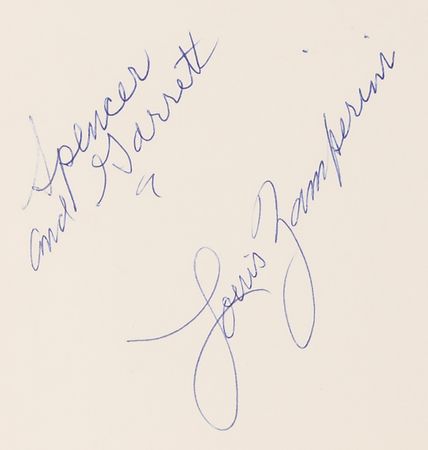 Spencer
and Garrett
Louis Zamperini